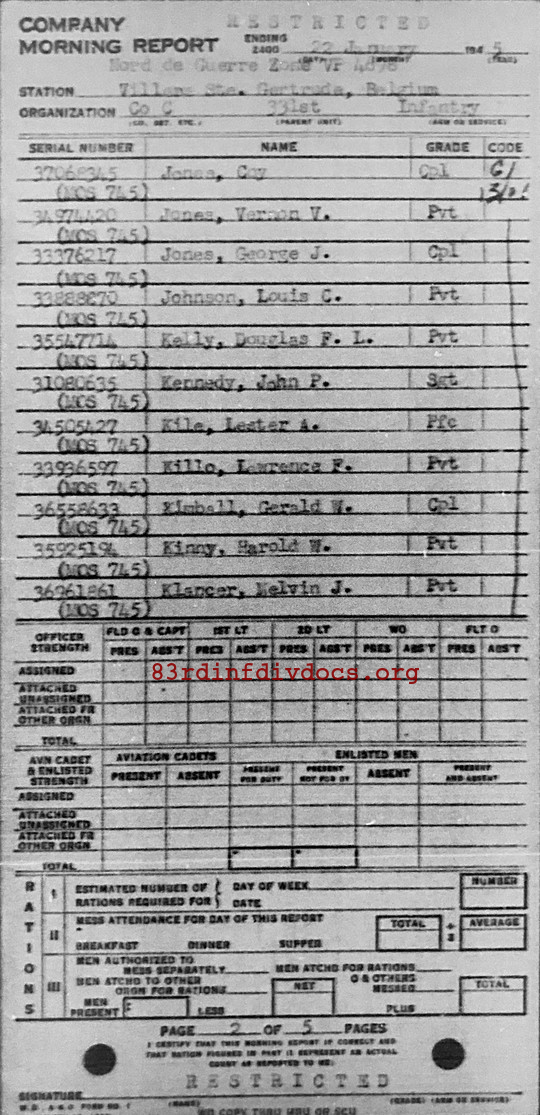 RESTRICTED
COMPANY
MORNING REPORT
ENDING 2400 22 January 1945
Nord de Guerre Zone VP 4898
STATION Villers Ste. Gertrude, Belgium
ORGANIZATION Co C 331st Infantry
(CO. DET. ETC.) (PARENT UNIT) (ARM OR SERVICE)
SERIAL NUMBER NAME GRADE CODE
37068345 Jones, Coy Cpl
(MOS 745)
34974420 Jones, Vernon V. Pvt
(MOS 745)
33376217 Jones, George J. Cpl
(MOS 745)
33888870 Johnson, Louis C. Pvt
(MOS 745)
35547714 Kelly, Douglas F. L. Pvt
(MOS 745)
31080635 Kennedy, John P. Sgt
(MOS 745)
34505427 Kile, Lester A. Pfc
(MOS 745)
33936597 Killo, Lawrence F. Pvt
(MOS 745)
36558633 Kimball, Gerald W. Cpl
(MOS 745)
35925194 Kinny, Harold W. Pvt
(MOS 745)
36961861 Klancer, Melvin J. Pvt
(MOS 745)
OFFICER STRENGTH FLD O & CAPT 1ST LT 2D LT WO FLT O
PRES ABS'T PRES ABS'T PRES ABS'T PRES ABS'T PRES ABS'T
83rdinfdivdocs.org
ASSIGNED
ATTACHED UNASSIGNED
ATTACHED FR OTHER ORGN
TOTAL
AVN CADET & ENLISTED STRENGTH AVIATION CADETS ENLISTED MEN
PRESENT ABSENT PRESENT FOR DUTY PRESENT NOT FOR DY ABSENT PRESENT AND ABSENT
ASSIGNED
ATTACHED UNASSIGNED
ATTACHED FR OTHER ORGN
TOTAL
RATIONS
I ESTIMATED NUMBER OF RATIONS REQUIRED FOR DAY OF WEEK DATE NUMBER
II MESS ATTENDANCE FOR DAY OF THIS REPORT TOTAL ÷ 3 AVERAGE
BREAKFAST DINNER SUPPER
III MEN AUTHORIZED TO MESS SEPARATELY MEN ATCHD FOR RATIONS
MEN ATCHD TO OTHER ORGN FOR RATIONS NET O & OTHERS MESSED TOTAL
MEN PRESENT LESS PLUS
PAGE 2 OF 5 PAGES
I CERTIFY THAT THIS MORNING REPORT IS CORRECT AND
THAT RATION FIGURES IN PART II REPRESENT AN ACTUAL
COUNT AS REPORTED TO ME:
RESTRICTED
SIGNATURE
W.D., A.G.O. FORM NO. 1 (NAME) (GRADE) (ARM OR SERVICE)
WD COPY THRU MRU OR SCU